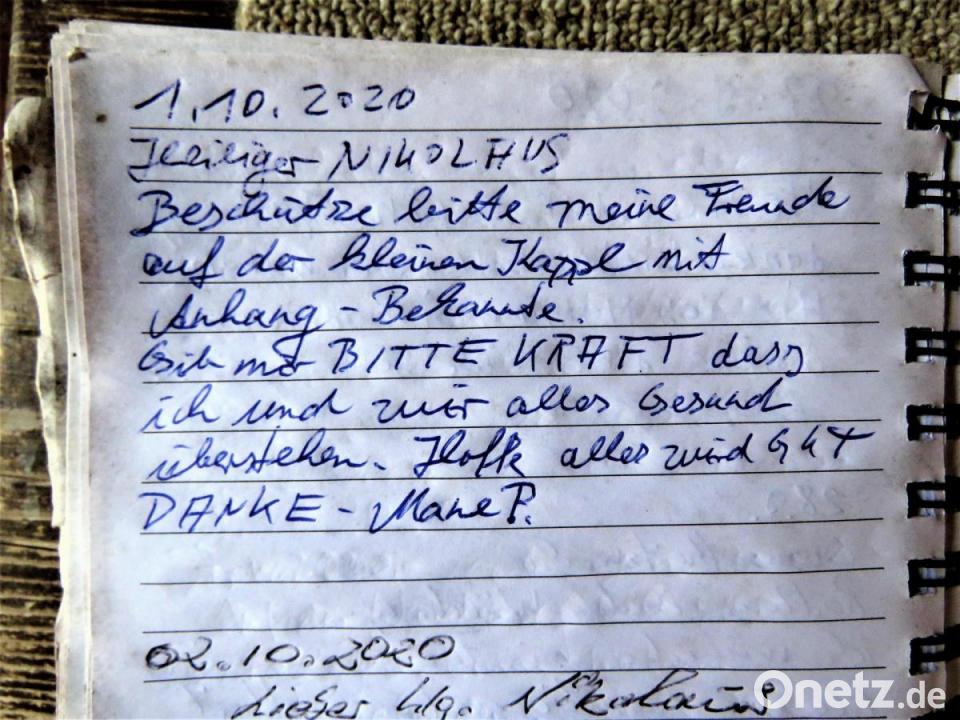 1.10.2020
Heiliger NIKOLAUS
Beschütze bitte meine Freunde
auf der kleinen Kappl mit
Anhang - Bekannte.
Gib mir BITTE KRAFT dass
ich und wir alles Gesund
überstehen. Hoffe alles wird GUT
DANKE - Mane P.
02.10.2020
Lieber Hlg. Nikolaus
Onetz.de